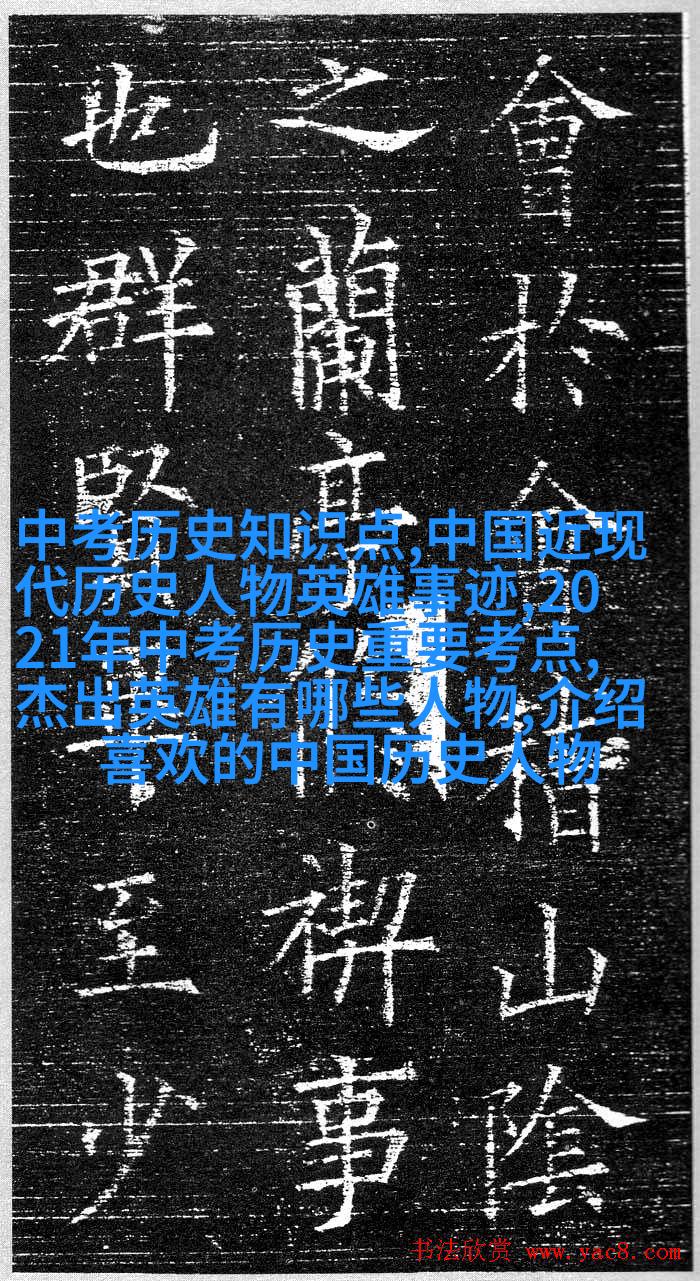 會於會稽山陰
之蘭亭禊事
也群賢至少
中考历史知识点,中国近现
代历史人物英雄事迹,20
21年中考历史重要考点,
杰出英雄有哪些人物,介绍
喜欢的中国历史人物
书法欣赏 www.yac8.com